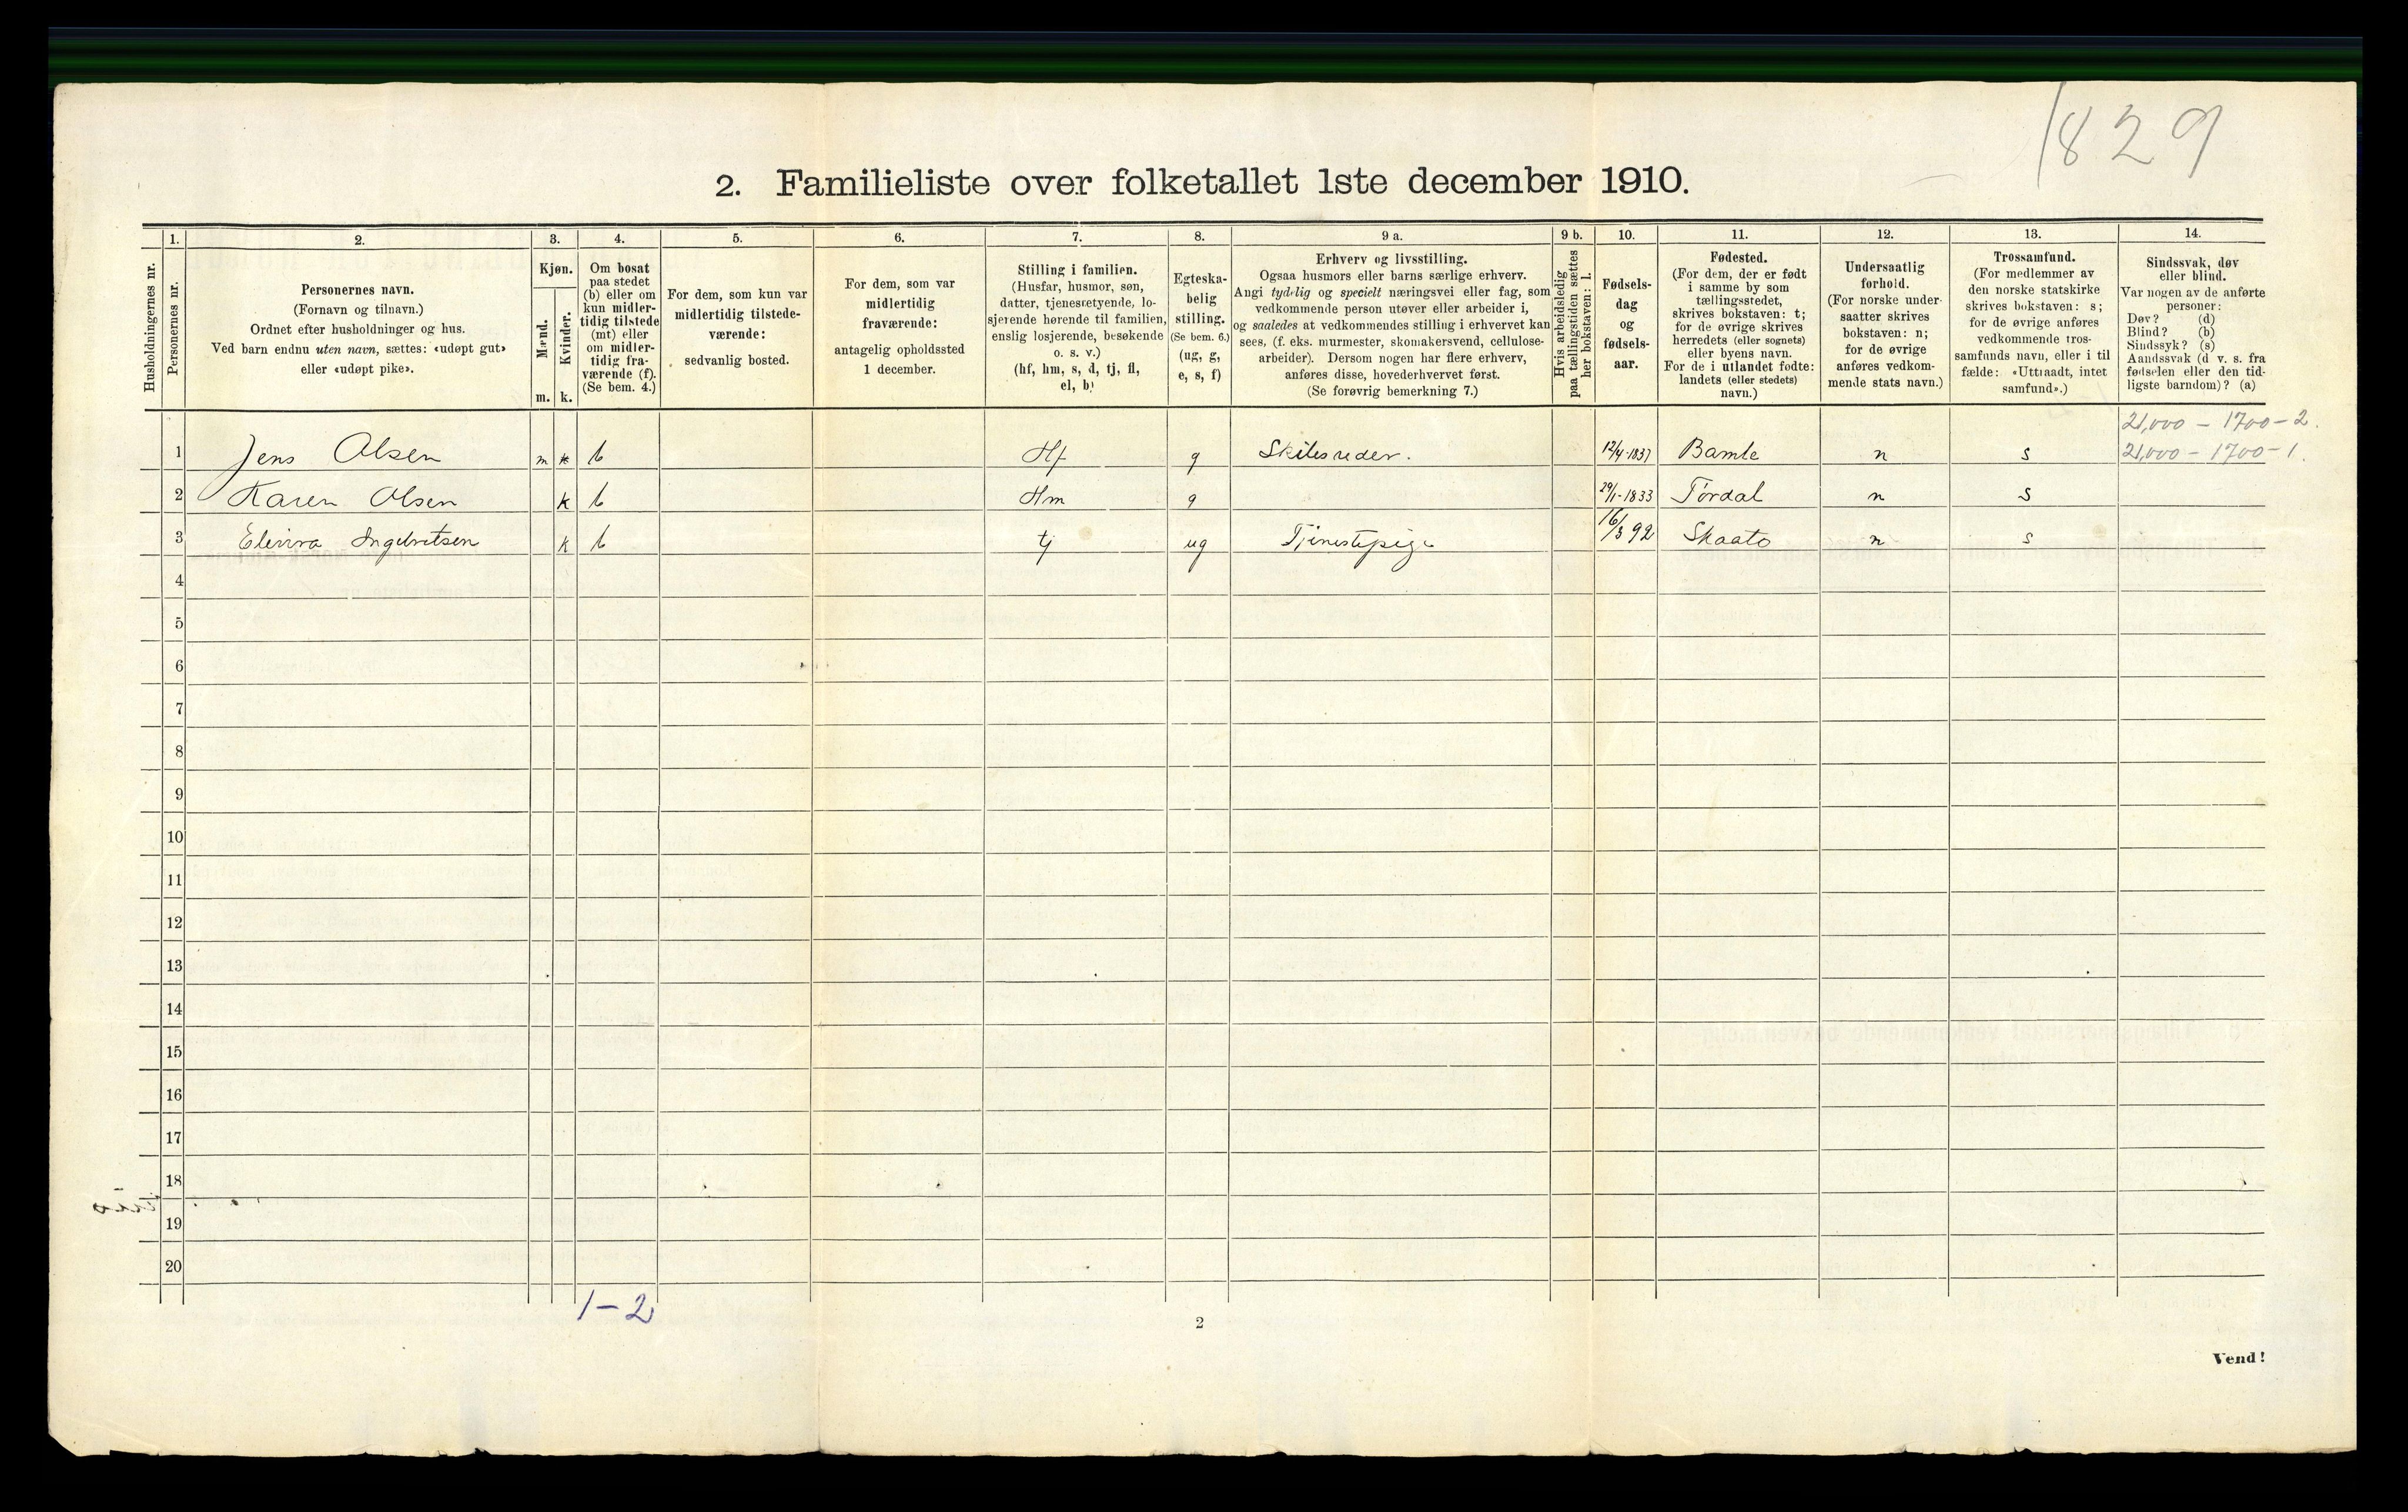 1829
2. Familieliste over folketallet 1ste december 1910.
Husholdningernes nr.
1.
Personernes nr.
2.
Personernes navn.
(Fornavn og tilnavn.)
Ordnet efter husholdninger og hus.
Ved barn endnu uten navn, sættes: «udøpt gut»
eller «udøpt pike».
3.
Kjøn.
Mænd.
Kvinder.
m. k.
4.
Om bosat
paa stedet
(b) eller om
kun midler-
tidig tilstede
(mt) eller
om midler-
tidig fra-
værende (f).
(Se bem. 4.)
5.
For dem, som kun var
midlertidig tilstede-
værende:
sedvanlig bosted.
6.
For dem, som var
midlertidig
fraværende:
antagelig opholdssted
1 december.
7.
Stilling i familien.
(Husfar, husmor, søn,
datter, tjenestetyende, lo-
sjerende hørende til familien,
enslig losjerende, besøkende
o. s. v.)
(hf, hm, s, d, tj, fl,
el, b)
8.
Egteska-
belig
stilling.
(Se bem. 6.)
(ug, g,
e, s, f)
9 a.
Erhverv og livsstilling.
Ogsaa husmors eller barns særlige erhverv.
Angi tydelig og specielt næringsvei eller fag, som
vedkommende person utøver eller arbeider i,
og saaledes at vedkommendes stilling i erhvervet kan
sees, (f. eks. murmester, skomakersvend, cellulose-
arbeider). Dersom nogen har flere erhverv,
anføres disse, hovederhvervet først.
(Se forøvrig bemerkning 7.)
9 b.
Hvis arbeidsledig
paa tællingstiden sættes
her bokstaven: l.
10.
Fødsels-
dag
og
fødsels-
aar.
11.
Fødested.
(For dem, der er født
i samme by som
tællingsstedet,
skrives bokstaven: t;
for de øvrige skrives
herredets (eller sognets)
eller byens navn.
For de i utlandet fødte:
landets (eller stedets)
navn.)
12.
Undersaatlig
forhold.
(For norske under-
saatter skrives
bokstaven: n;
for de øvrige
anføres vedkom-
mende stats navn.)
13.
Trossamfund.
(For medlemmer av
den norske statskirke
skrives bokstaven: s;
for de øvrige anføres
vedkommende tros-
samfunds navn, eller i til
fælde: «Uttraadt, intet
samfund».)
14.
Sindssvak, døv
eller blind.
Var nogen av de anførte
personer:
Døv? (d)
Blind? (b)
Sindssyk? (s)
Aandssvak (d v. s. fra
fødselen eller den tid-
ligste barndom)? (a)
21,000 - 1700 - 2.
1 Jens Olsen m k b Hf g Skibsreder. 12/4-1837 Bamle n s 21,000 - 1700 - 1.
2 Karen Olsen k b Hm g 29/1-1833 Tørdal n s
3 Elevira Ingebretsen k b tj ug Tjenestepige 16/3 92 Skaatø n s
4
5
6
7
8
9
10
11
12
13
14
15
16
17
18
19
20
1-2
2
Vend!